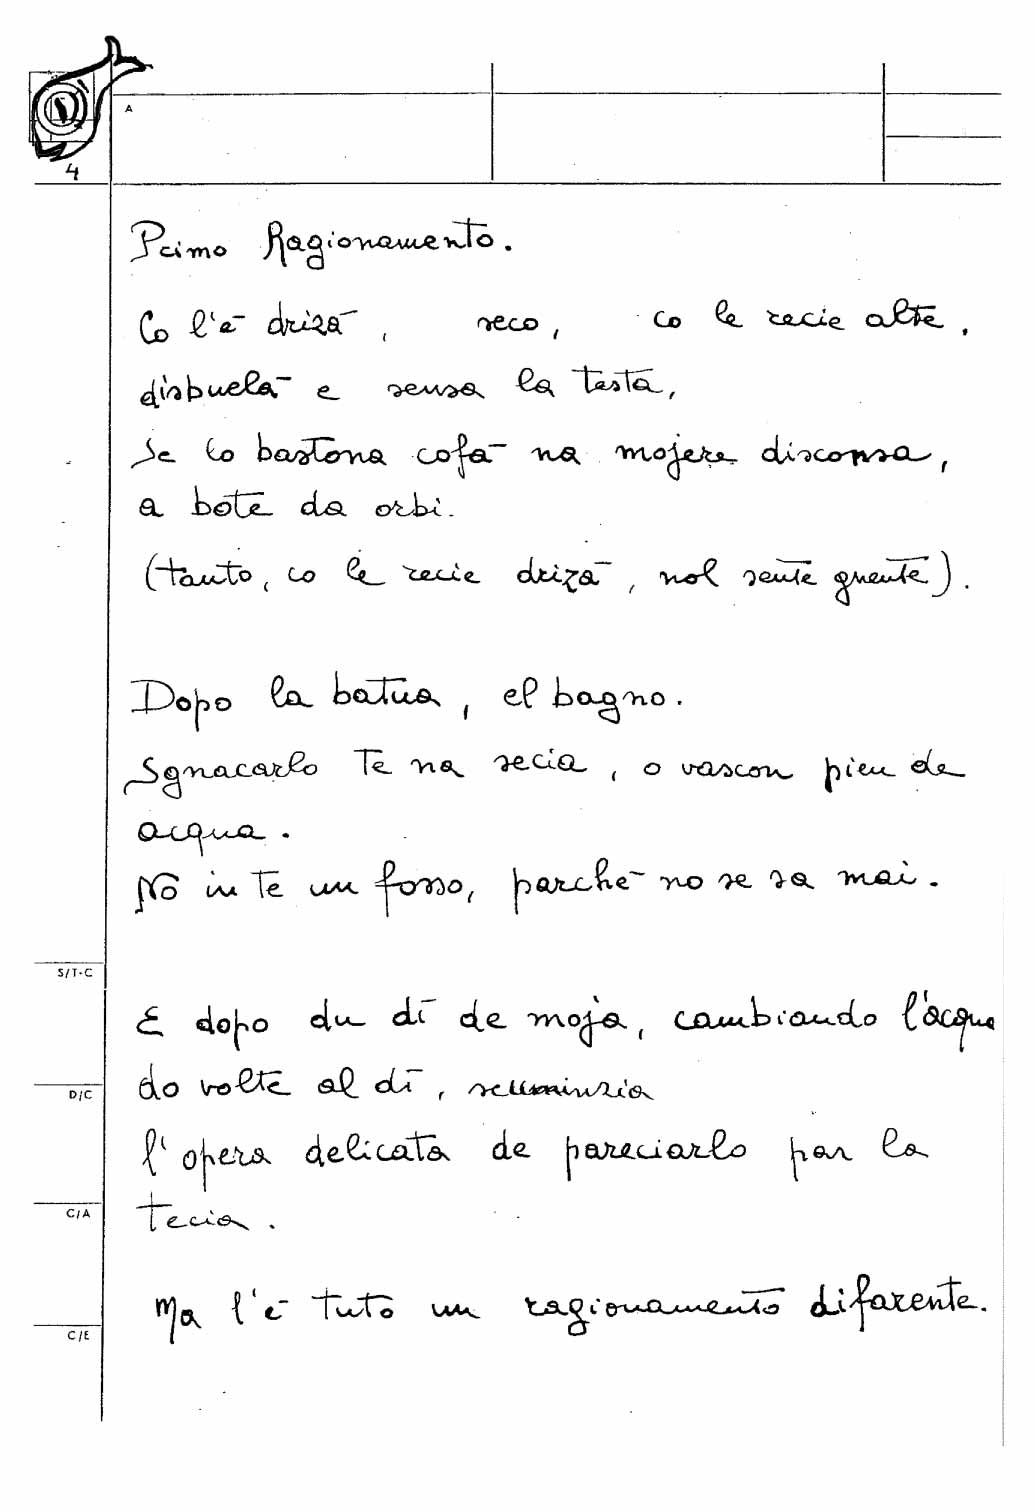 A
4
Primo Ragionamento.
Co l'è drizà, seco, co le recie alte,
disbuelà e sensa la testa,
Se lo bastona cofà na mojere disconsa,
a bote da orbi.
(tanto, co le recie drizà, nol sente gnente).
Dopo la batua, el bagno.
Sgnacarlo te na secia, o vascon pien de
acqua.
No in te un fosso, parchè no se sa mai.
S/T-C
E dopo du dì de moja, cambiando l'acqua
D/C
do volte al dì, scuminzia
l'opera delicata de pareciarlo par la
C/A
tecia.
Ma l'è tuto un ragionamento difarente.
C/E